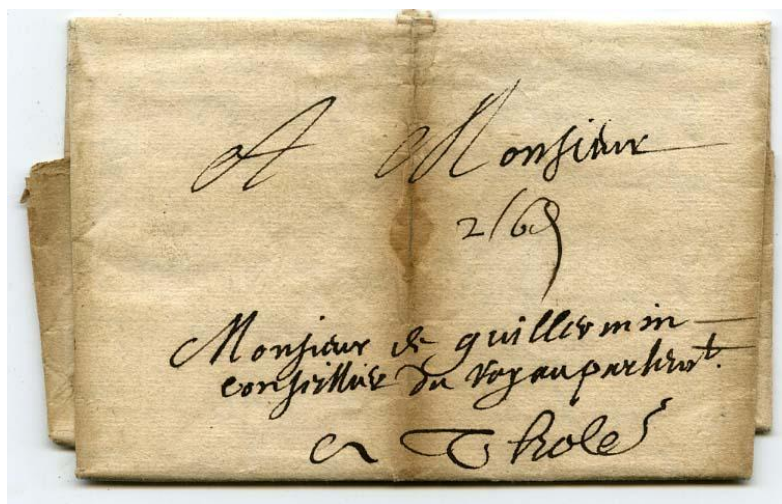 A Monsieur
2/6s
Monsieur de guillermin
conseillier du roy au parlemt.
A Tholoe